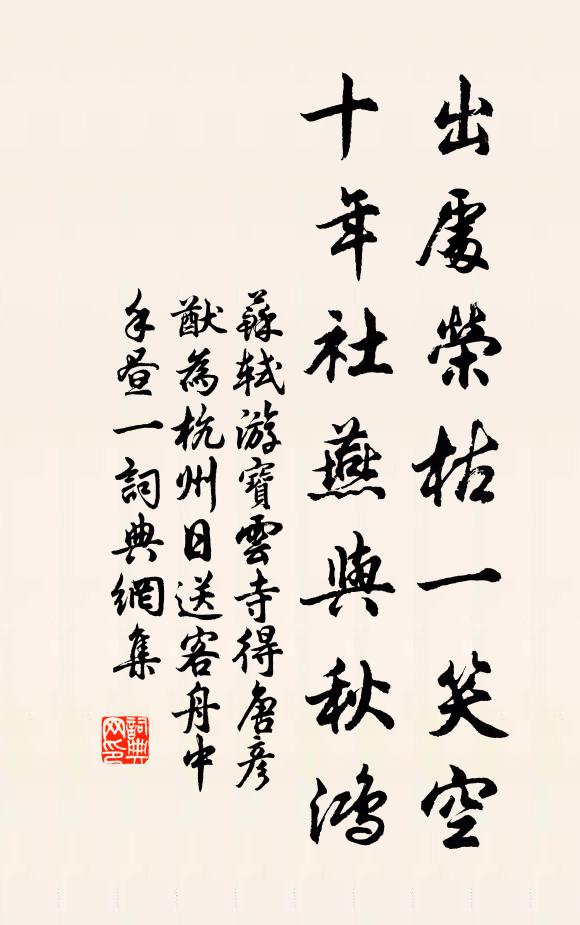 出處榮枯一笑空
十年社燕與秋鴻
蘇軾游寶雲寺得唐彥
猷為杭州日送客舟中
手書一詞典網集
詞典網印